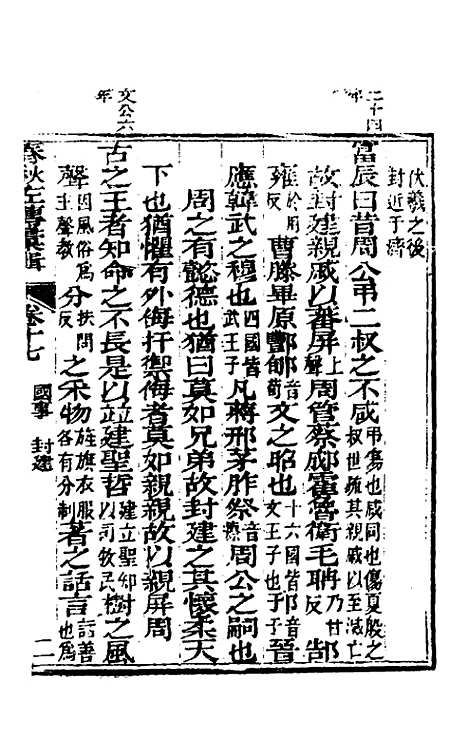 二十四年
文公六年
伏羲之後
封近于濟
富辰曰昔周公弔二叔之不咸弔傷也咸同也傷夏殷之叔世疏其親戚以至滅亡
故封建親戚以蕃屏上聲周管蔡郕霍魯衛毛聃乃甘反郜
雍於用反曹滕畢原酆音郇音荀文之昭也十六國皆文王子也
晉
應韓武之穆也四國皆武王子凡蔣邢茅胙祭音瘵周公之嗣也
周之有懿德也猶曰莫如兄弟故封建之其懷柔天
下也猶懼有外侮扞禦侮者莫如親親故以親屏周
古之王者知命之不長是以立建聖哲建立聖知以司牧民樹之風
聲因風俗為立聲教分扶問反之采物旌旗衣服各有分制著之話言話善也為
春秋左傳彙輯 卷十七 國事 封建 二